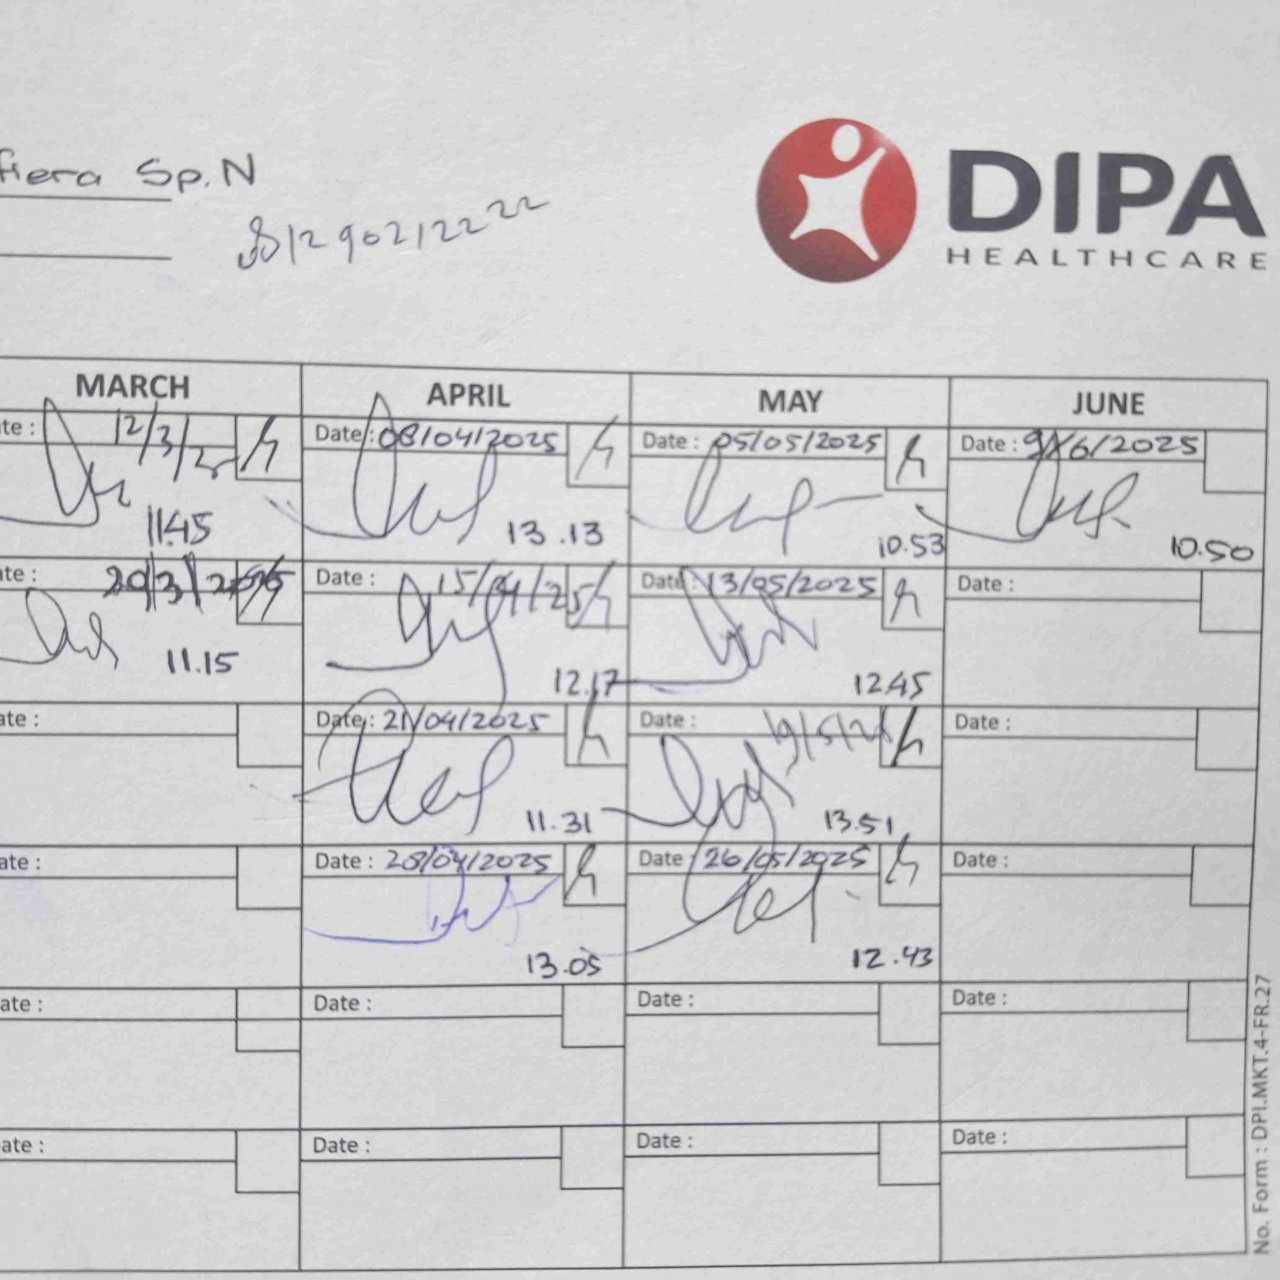 fiera Sp.N
081290212222
DIPA
HEALTHCARE
MARCH APRIL MAY JUNE
ate : 12/3/25 Date : 08/04/2025 Date : 05/05/2025 Date : 9/6/2025
11.45 13.13 10.53 10.50
ate : 20/3/2025 Date : 15/04/25 Date : 13/05/2025 Date :
11.15 12.17 12.45
ate : Date : 21/04/2025 Date : 19/5/25 Date :
11.31 13.51
ate : Date : 28/04/2025 Date : 26/05/2025 Date :
13.05 12.43
ate : Date : Date : Date :
ate : Date : Date : Date :
No. Form : DPI.MKT.4-FR.27